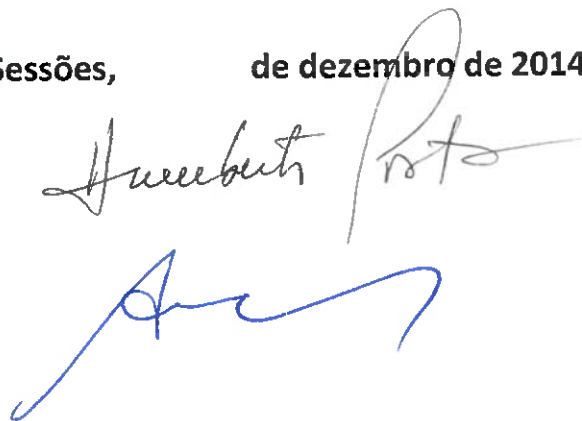 Sessões, de dezembro de 2014
Humberto Porto